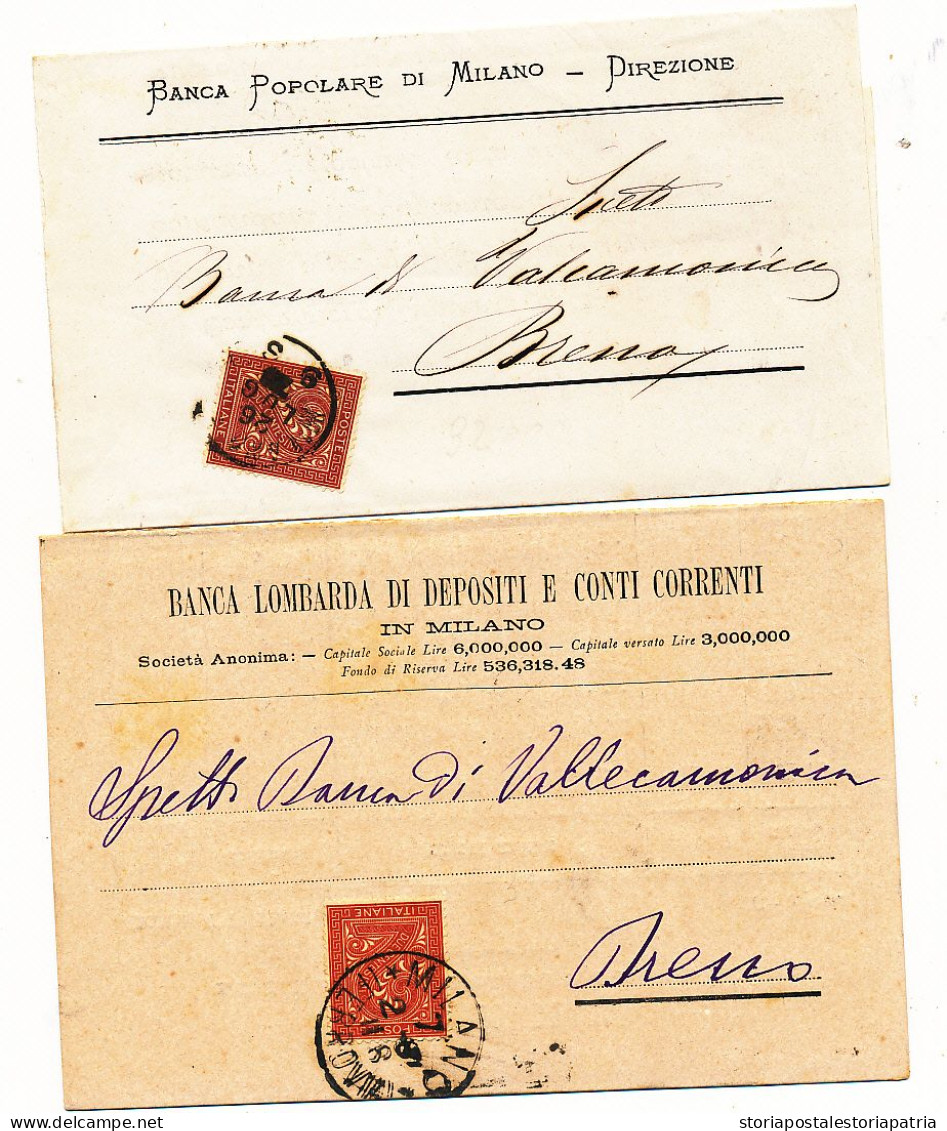 BANCA POPOLARE DI MILANO — DIREZIONE
Spett
Banca di Valcamonica
Breno
POSTE
ITALIANE
BANCA LOMBARDA DI DEPOSITI E CONTI CORRENTI
IN MILANO
Società Anonima: — Capitale Sociale Lire 6,000,000 — Capitale versato Lire 3,000,000
Fondo di Riserva Lire 536,318.48
Spett. Banca di Vallecamonica
ITALIANE
POSTE
MILANO
Breno
storiapostalestoriapatria